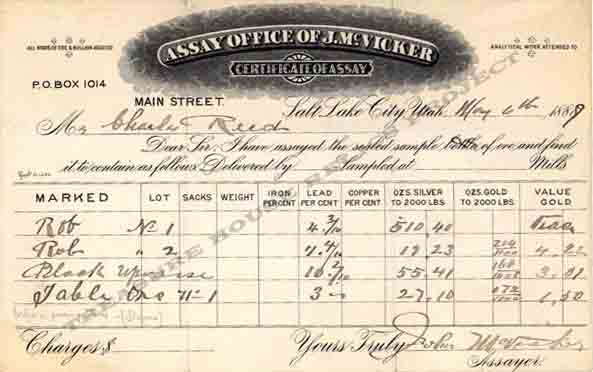 ALL KINDS OF ORE & BULLION ASSAYED
ANALYTICAL WORK ATTENDED TO
ASSAY OFFICE OF J. McVICKER
CERTIFICATE OF ASSAY
P.O. BOX 1014
MAIN STREET.
Salt Lake City, Utah, May 6th 1889
Mr Charles Reed
Dear Sir: I have assayed the sealed sample of ore and find
it to contain as follows: Delivered by Sampled at Mills
MARKED LOT SACKS WEIGHT IRON PER CENT LEAD PER CENT COPPER PER CENT OZS. SILVER TO 2000 LBS. OZS. GOLD TO 2000 LBS. VALUE GOLD
Rob No 1 4 3/10 510.40 Trace
Rob " 2 4 4/10 18.23
Black 55.41
Table Ore No 1 3 27.10 1.50
Charges $ Yours Truly John McVicker
Assayer.
TREASURE HOUSE RELICS PROJECT